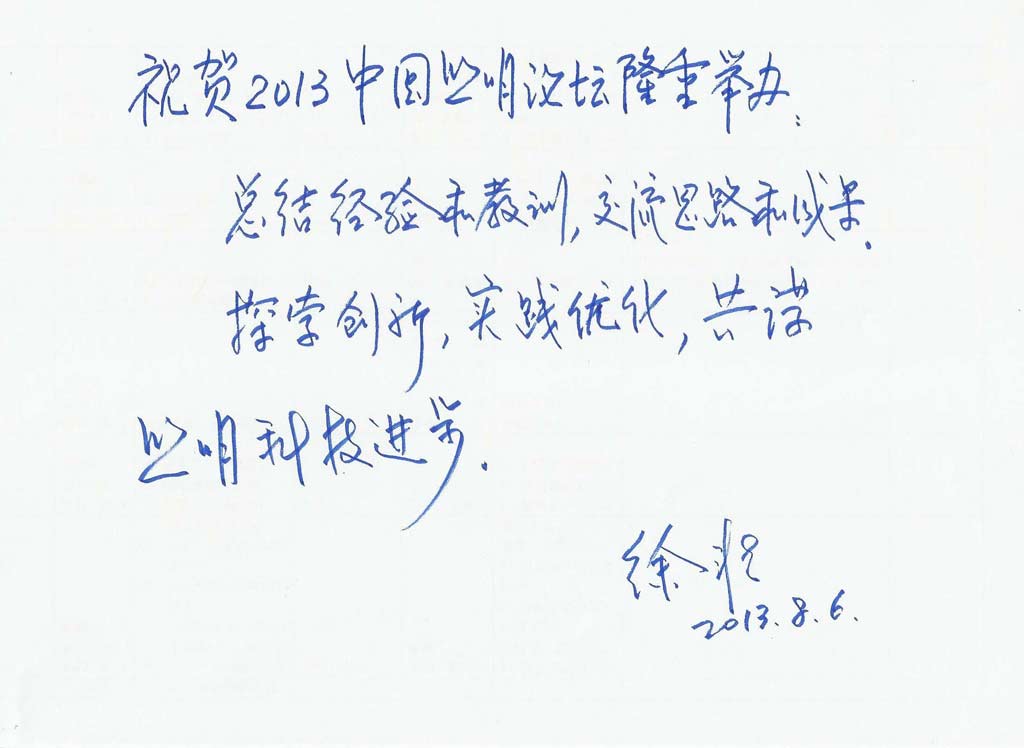 祝贺2013中国照明论坛隆重举办:
总结经验和教训,交流思路和成果.
探索创新,实践优化,共谋
照明科技进步.
徐淮
2013.8.6.